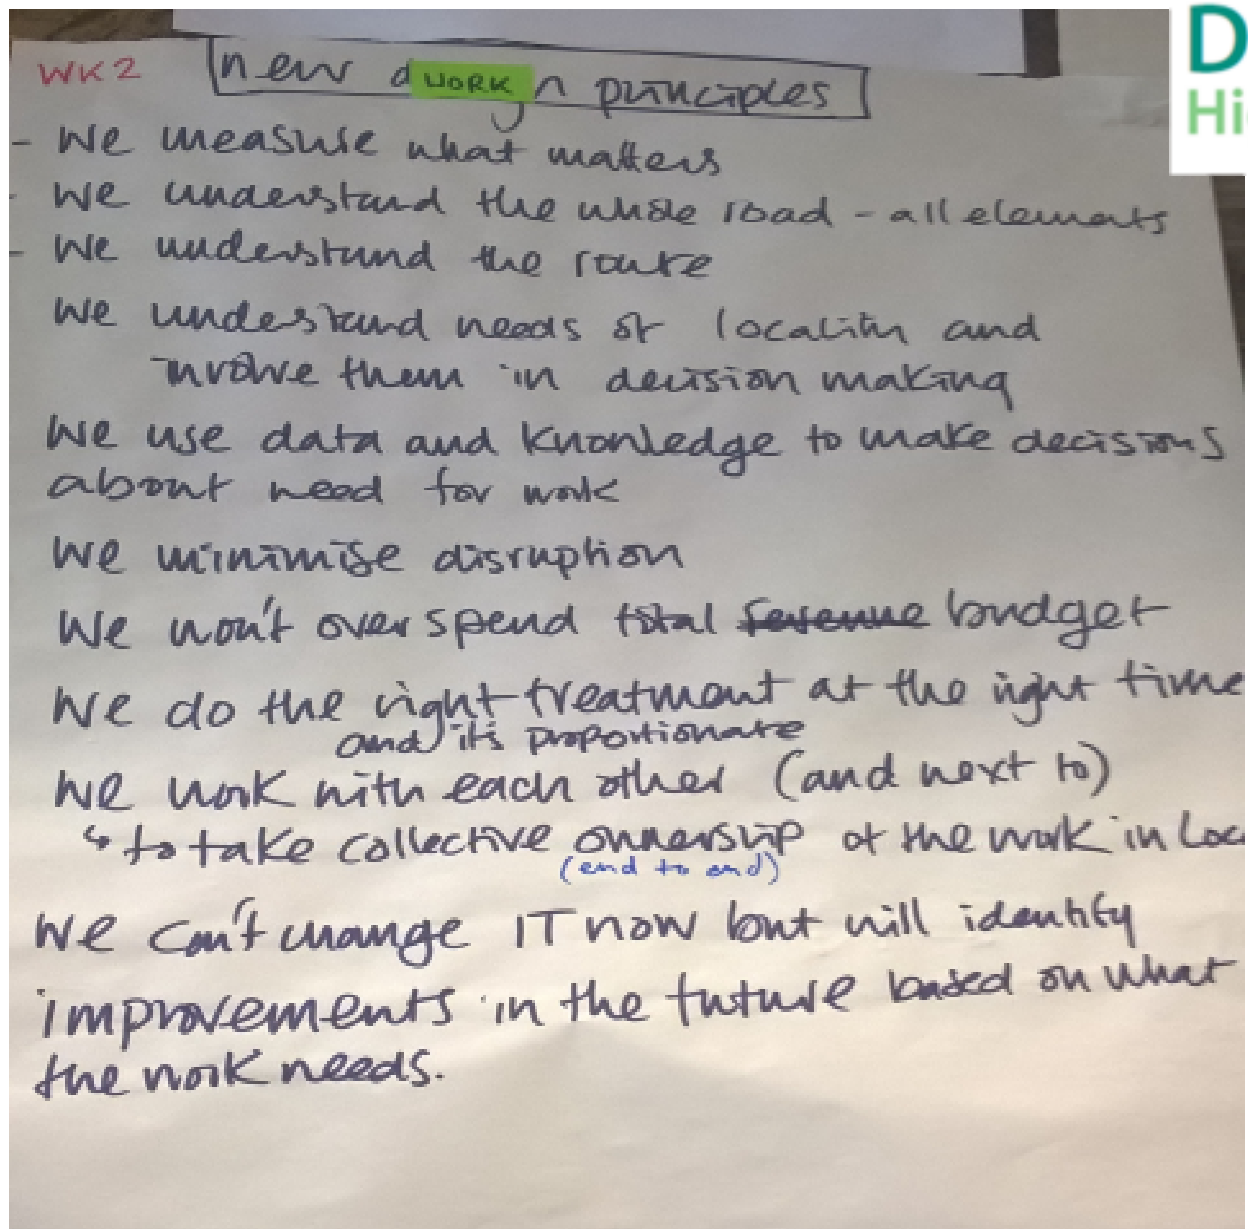 D
Hi
WK2 new d WORK n principles
- We measure what matters
- We understand the whole road - all elements
- We understand the route
We understand needs of locality and
involve them in decision making
We use data and knowledge to make decisions
about need for work
We minimise disruption
We won't overspend total revenue budget
We do the right treatment at the right time
and its proportionate
We work with each other (and next to)
↳ to take collective ownership of the work in Loc
(end to end)
We can't change IT now but will identify
improvements in the future based on what
the work needs.